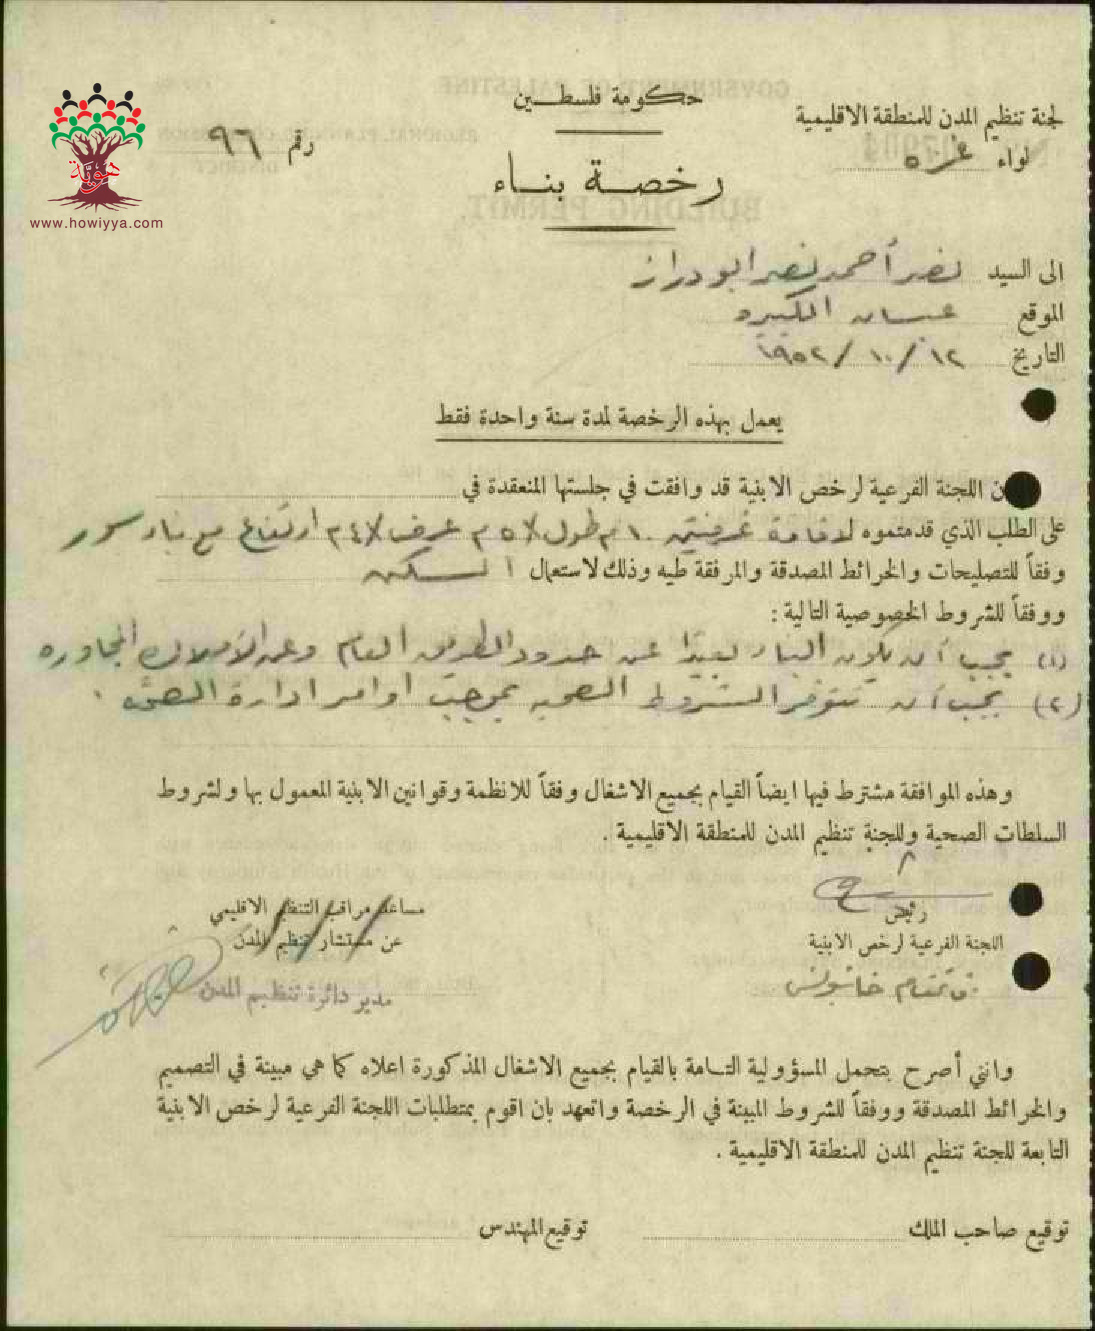 حكومة فلسطين
لجنة تنظيم المدن للمنطقة الاقليمية
لواء غزه
رقم ٩٦
رخصة بناء
هوية
www.howiyya.com
الى السيد نصر أحمد نصر ابو دراز
الموقع عبسان الكبيره
التاريخ ١٢/١٠/١٩٥٢
يعمل بهذه الرخصة لمدة سنة واحدة فقط
ن اللجنة الفرعية لرخص الابنية قد وافقت في جلستها المنعقدة في
على الطلب الذي قدمتموه لاقامة غرفتين ١٠ م طول / ٥ م عرض / ٤ م ارتفاع مع بناء سور
وفقاً للتصليحات والخرائط المصدقة والمرفقة طيه وذلك لاستعمال السكن
ووفقاً للشروط الخصوصية التالية :
(١) يجب أن يكون البناء بعيدًا عن حدود الطريق العام وعن الأملاك المجاوره
(٢) يجب أن تتوفر الشروط الصحيه بموجب أوامر ادارة الصحة .
وهذه الموافقة مشترط فيها ايضاً القيام بجميع الاشغال وفقاً للانظمة وقوانين الابنية المعمول بها ولشروط
السلطات الصحية وللجنة تنظيم المدن للمنطقة الاقليمية .
رئيس
اللجنة الفرعية لرخص الابنية
قائمقام خانيونس
مساعد مراقب التنظيم الاقليمي
عن مستشار تنظيم المدن
مدير دائرة تنظيم المدن
وانني أصرح بتحمل المسؤولية التامة بالقيام بجميع الاشغال المذكورة اعلاه كما هي مبينة في التصميم
والخرائط المصدقة ووفقاً للشروط المبينة في الرخصة واتعهد بان اقوم بمتطلبات اللجنة الفرعية لرخص الابنية
التابعة للجنة تنظيم المدن للمنطقة الاقليمية .
توقيع صاحب الملك
توقيع المهندس